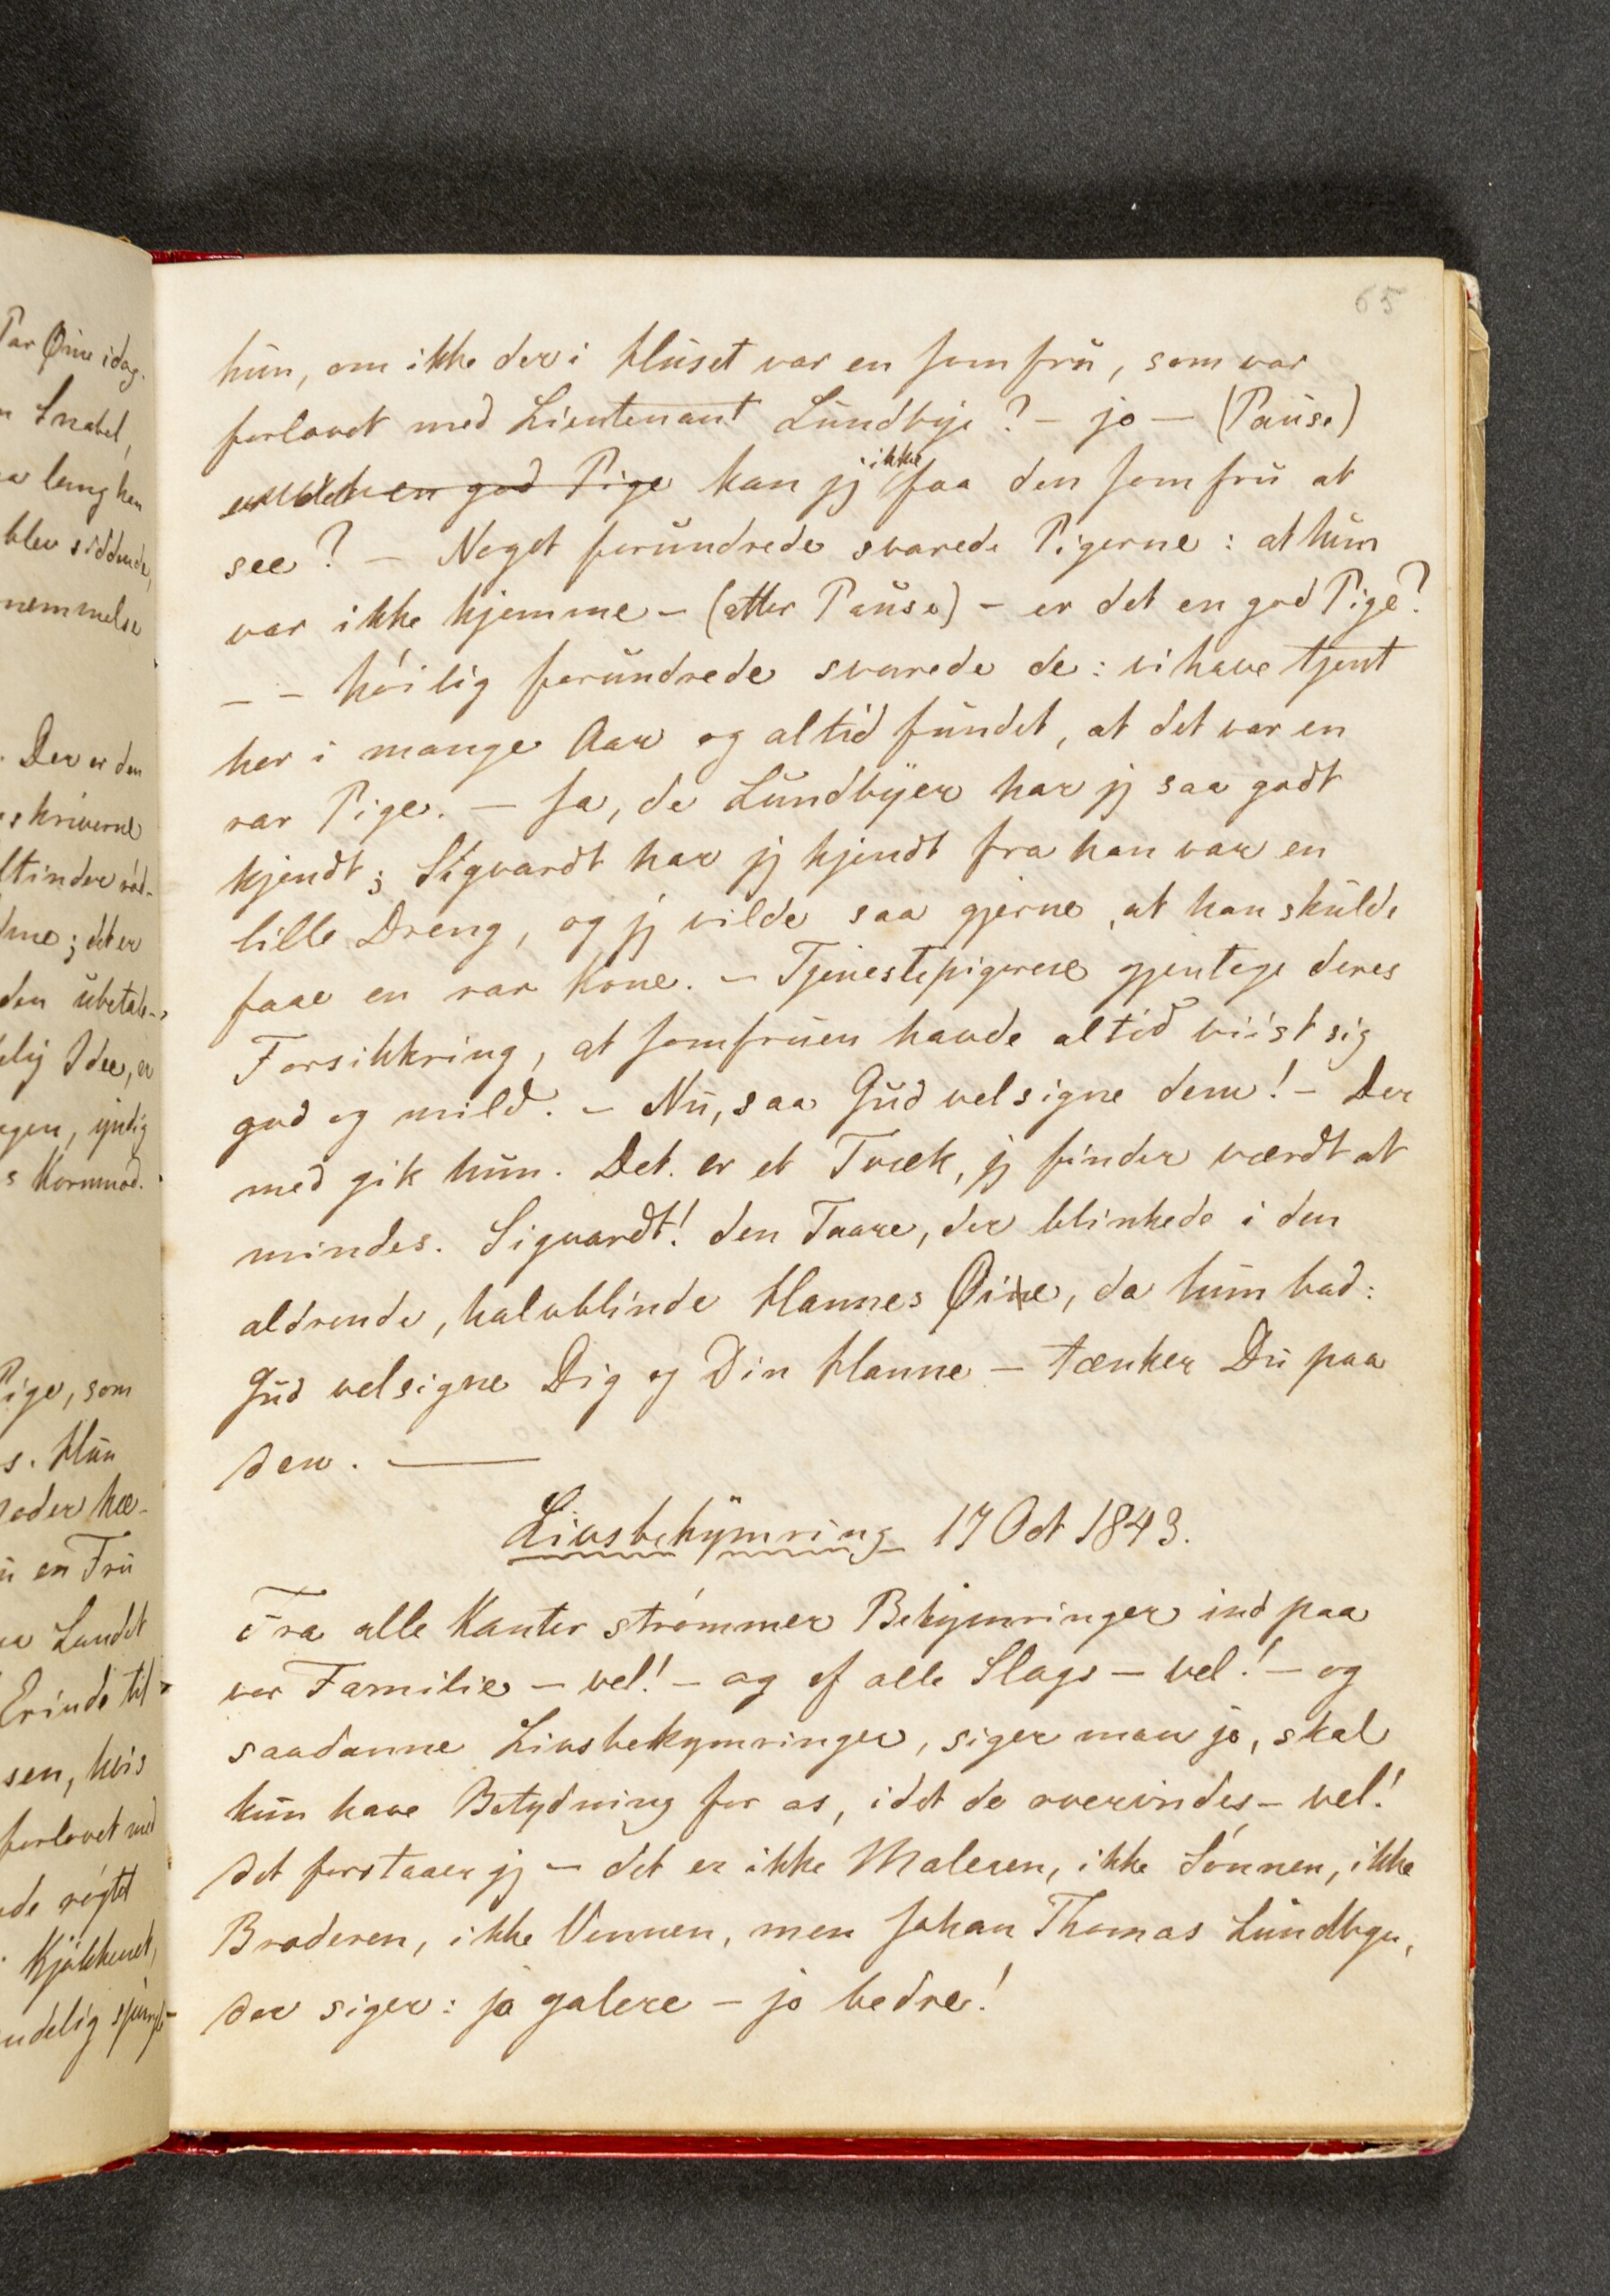 65
hun, om ikke der i Huset var en Jomfru, som var
forlovet med Lieutenant Lundbye? — jo — (Pause)
er det en god Pige kan jeg ikke faa den Jomfru at
see? — Noget forundrede svarede Pigerne: at hun
var ikke hjemme — (atter Pause) — er det en god Pige?
— — höilig forundrede svarede de: vi have tjent
her i mange Aar og altid fundet, at det var en
rar Pige. — Ja, de Lundbyer har jeg saa godt
kjendt; Sigvardt har jeg kjendt fra han var en
lille Dreng, og jeg vilde saa gjerne, at han skulde
faae en rar Kone. — Tjenestepigerne gjentoge deres
Forsikkring, at Jomfruen havde altid viist sig
god og mild. — Nu, saa Gud velsigne dem! — Der
med gik hun. Det er et Træk, jeg finder værdt at
mindes. Sigvardt! den Taare, der blinkede i den
aldrende, halvblinde Hannes Øine, da hun bad:
Gud velsigne Dig og Din Hanne — tænker Du paa
den. —
Livsbekymring 17 Oct 1843.
Fra alle Kanter strömmer Bekymringer ind paa
vor Familie — vel! — og af alle Slags — vel! — og
saadanne Livsbekymringer, siger man jo, skal
kun have Betydning for os, idet de overvindes — vel!
det forstaaer jeg — det er ikke Maleren, ikke Sönnen, ikke
Broderen, ikke Vennen, men Johan Thomas Lundbye,
der siger: jo galere — jo bedre!
Par Øine idag.
Snabel,
lang hen
blev siddende,
nemmelse
Der er den
skriverne
; det er
den ubetale-
Idee, er
yndig
Kornmod.
Pige, som
s. Hun
en Fru
Landet
Erinde til
sen, hvis
forlovet med
røgtet
Kjökkenet,